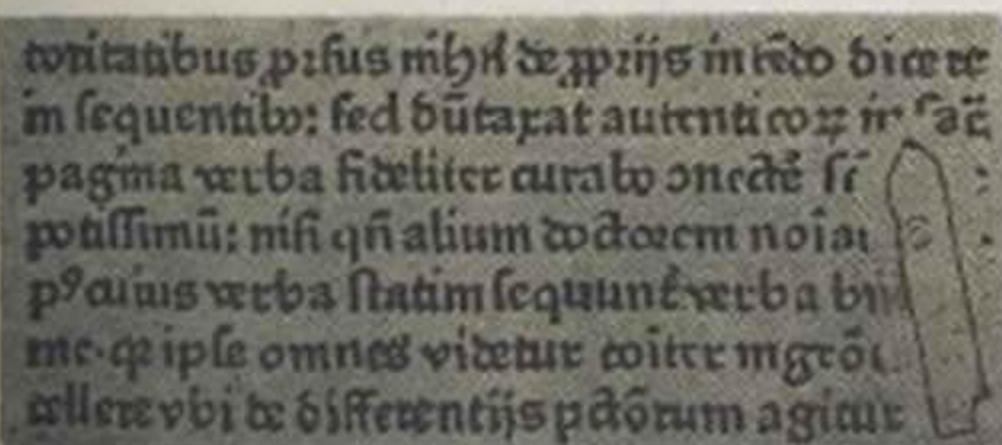 toritatibus prsus nihil de ꝓprijs intēdo dicere
in sequentibꝰ: sed dūtaxat autenticoꝝ in sac̄
pagina verba fideliter curabo ↄnectē
potissimū: nisi qn̄ alium doctorem noīa
pꝰ cuius verba statim sequunt᷑ verba
me. qꝛ ipse omnes videtur cōiter
cellere vbi de differentijs pctōrum agitur